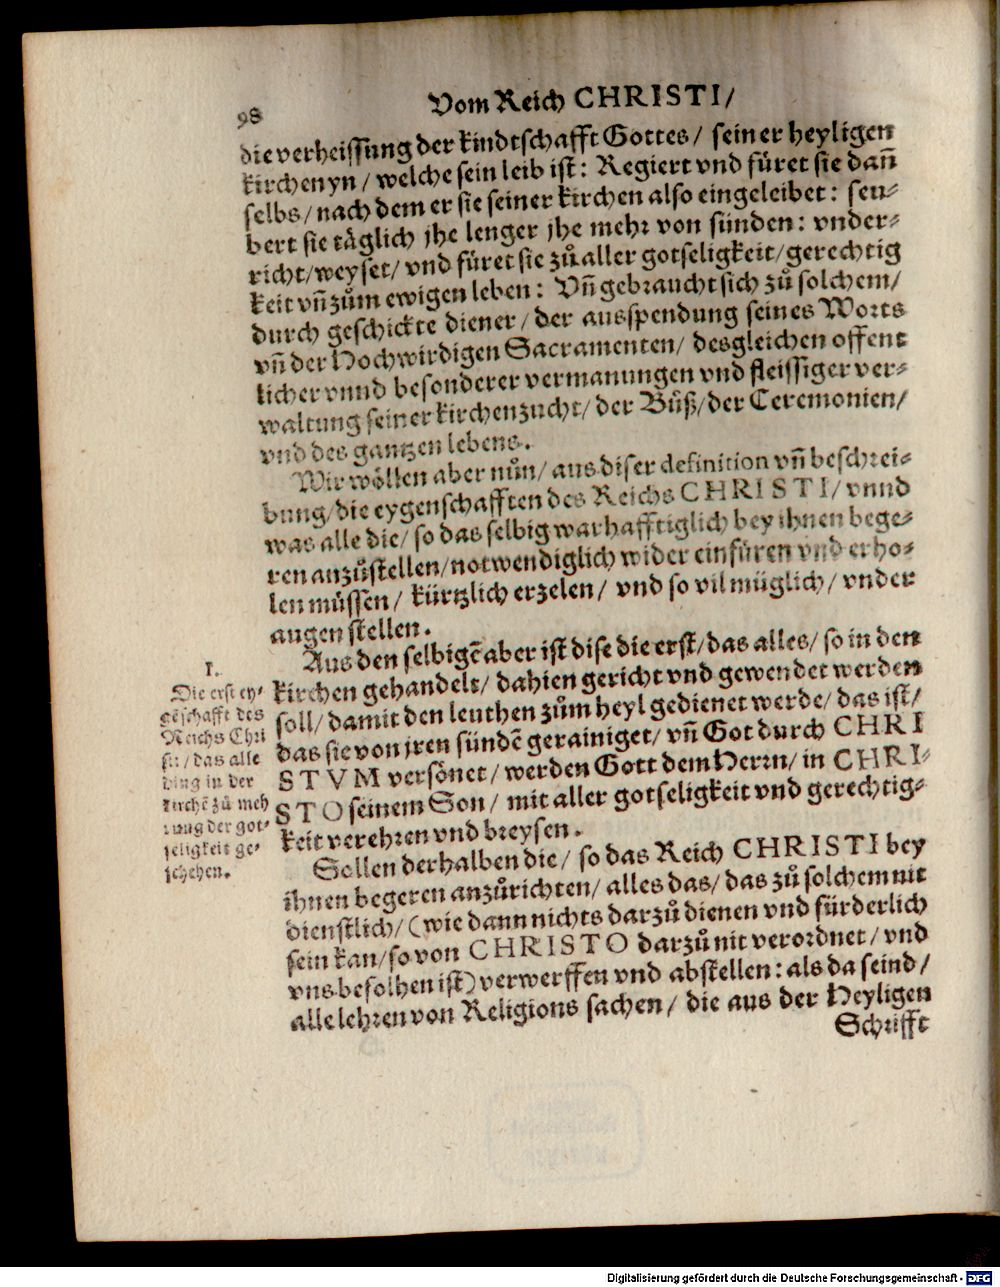 98
Vom Reich CHRISTI/
die verheissung der kindtschafft Gottes/ seiner heyligen
kirchen yn/ welche sein leib ist: Regiert vnd füret sie dañ
selbs/ nach dem er sie seiner kirchen also eingeleibet: seu-
bert sie täglich jhe lenger jhe mehr von sünden: vnder-
richt/ weyset/ vnd füret sie zů aller gotseligkeit/ gerechtig
keit vñ zům ewigen leben: Vñ gebraucht sich zů solchem/
durch geschickte diener/ der ausspendung seines Worts
vñ der Hochwirdigen Sacramenten/ desgleichen offent
licher vnnd besonderer vermanungen vnd fleissiger ver-
waltung seiner kirchenzucht/ der Bůß/ der Ceremonien/
vnd des gantzen lebens.
Wir wöllen aber nůn/ aus diser definition vñ beschrei-
bung/ die eygenschafften des Reichs CHRISTI/ vnnd
was alle die/ so das selbig warhafftiglich bey ihnen bege-
ren anzůstellen/ notwendiglich wider einfüren vnd erho-
len müssen/ kürtzlich erzelen/ vnd so vil müglich/ vnder
augen stellen.
Aus den selbigē aber ist dise die erst/ das alles/ so in den
kirchen gehandelt/ dahien gericht vnd gewendet werden
soll/ damit den leuthen zům heyl gedienet werde/ das ist/
das sie von jren sündē gerainiget/ vñ Got durch CHRI
STVM versönet/ werden Gott dem Herrn/ in CHRI-
STO seinem Son/ mit aller gotseligkeit vnd gerechtig-
keit verehren vnd breysen.
Sollen derhalben die/ so das Reich CHRISTI bey
ihnen begeren anzůrichten/ alles das/ das zů solchem nit
dienstlich/ (wie dann nichts darzů dienen vnd fürderlich
sein kan/ so von CHRISTO darzů nit verordnet/ vnd
vns befolhen ist) verwerffen vnd abstellen: als da seind/
alle lehren von Religions sachen/ die aus der Heyligen
Schrifft
I.
Die erst ey-
gēschafft des
Reichs Chri
sti/ das alle
ding in der
kirchē zů meh
rung der got-
seligkeit ge-
schehen.
Digitalisierung gefördert durch die Deutsche Forschungsgemeinschaft - DFG